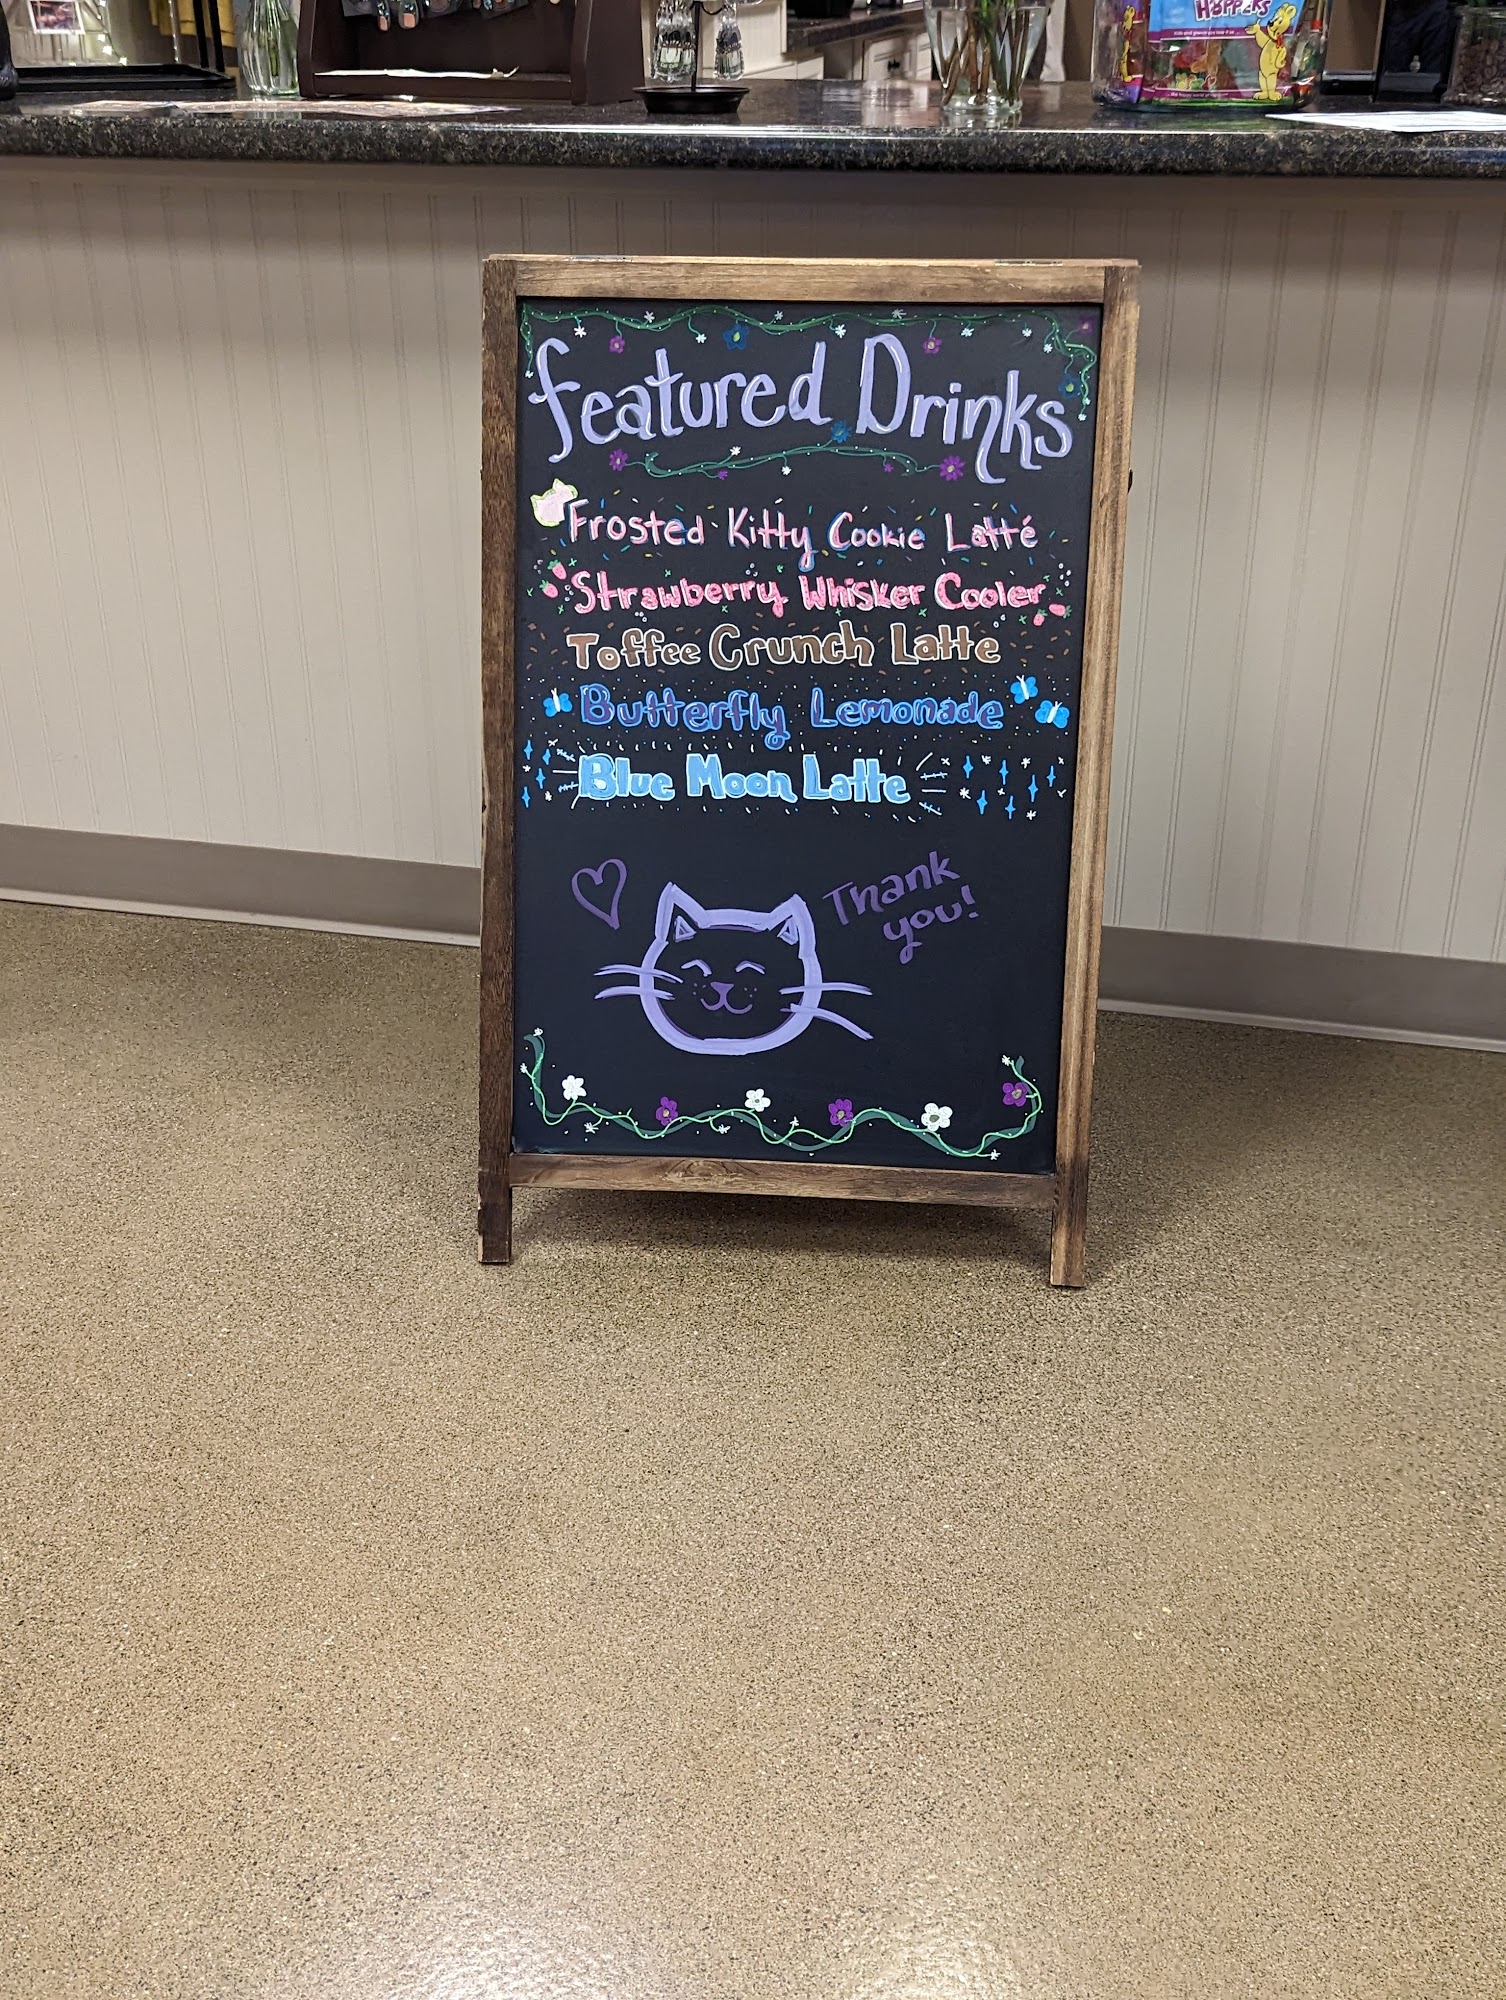 HOPPERS
Featured Drinks
Frosted Kitty Cookie Latté
Strawberry Whisker Cooler
Toffee Crunch Latte
Butterfly Lemonade
Blue Moon Latte
Thank
you!